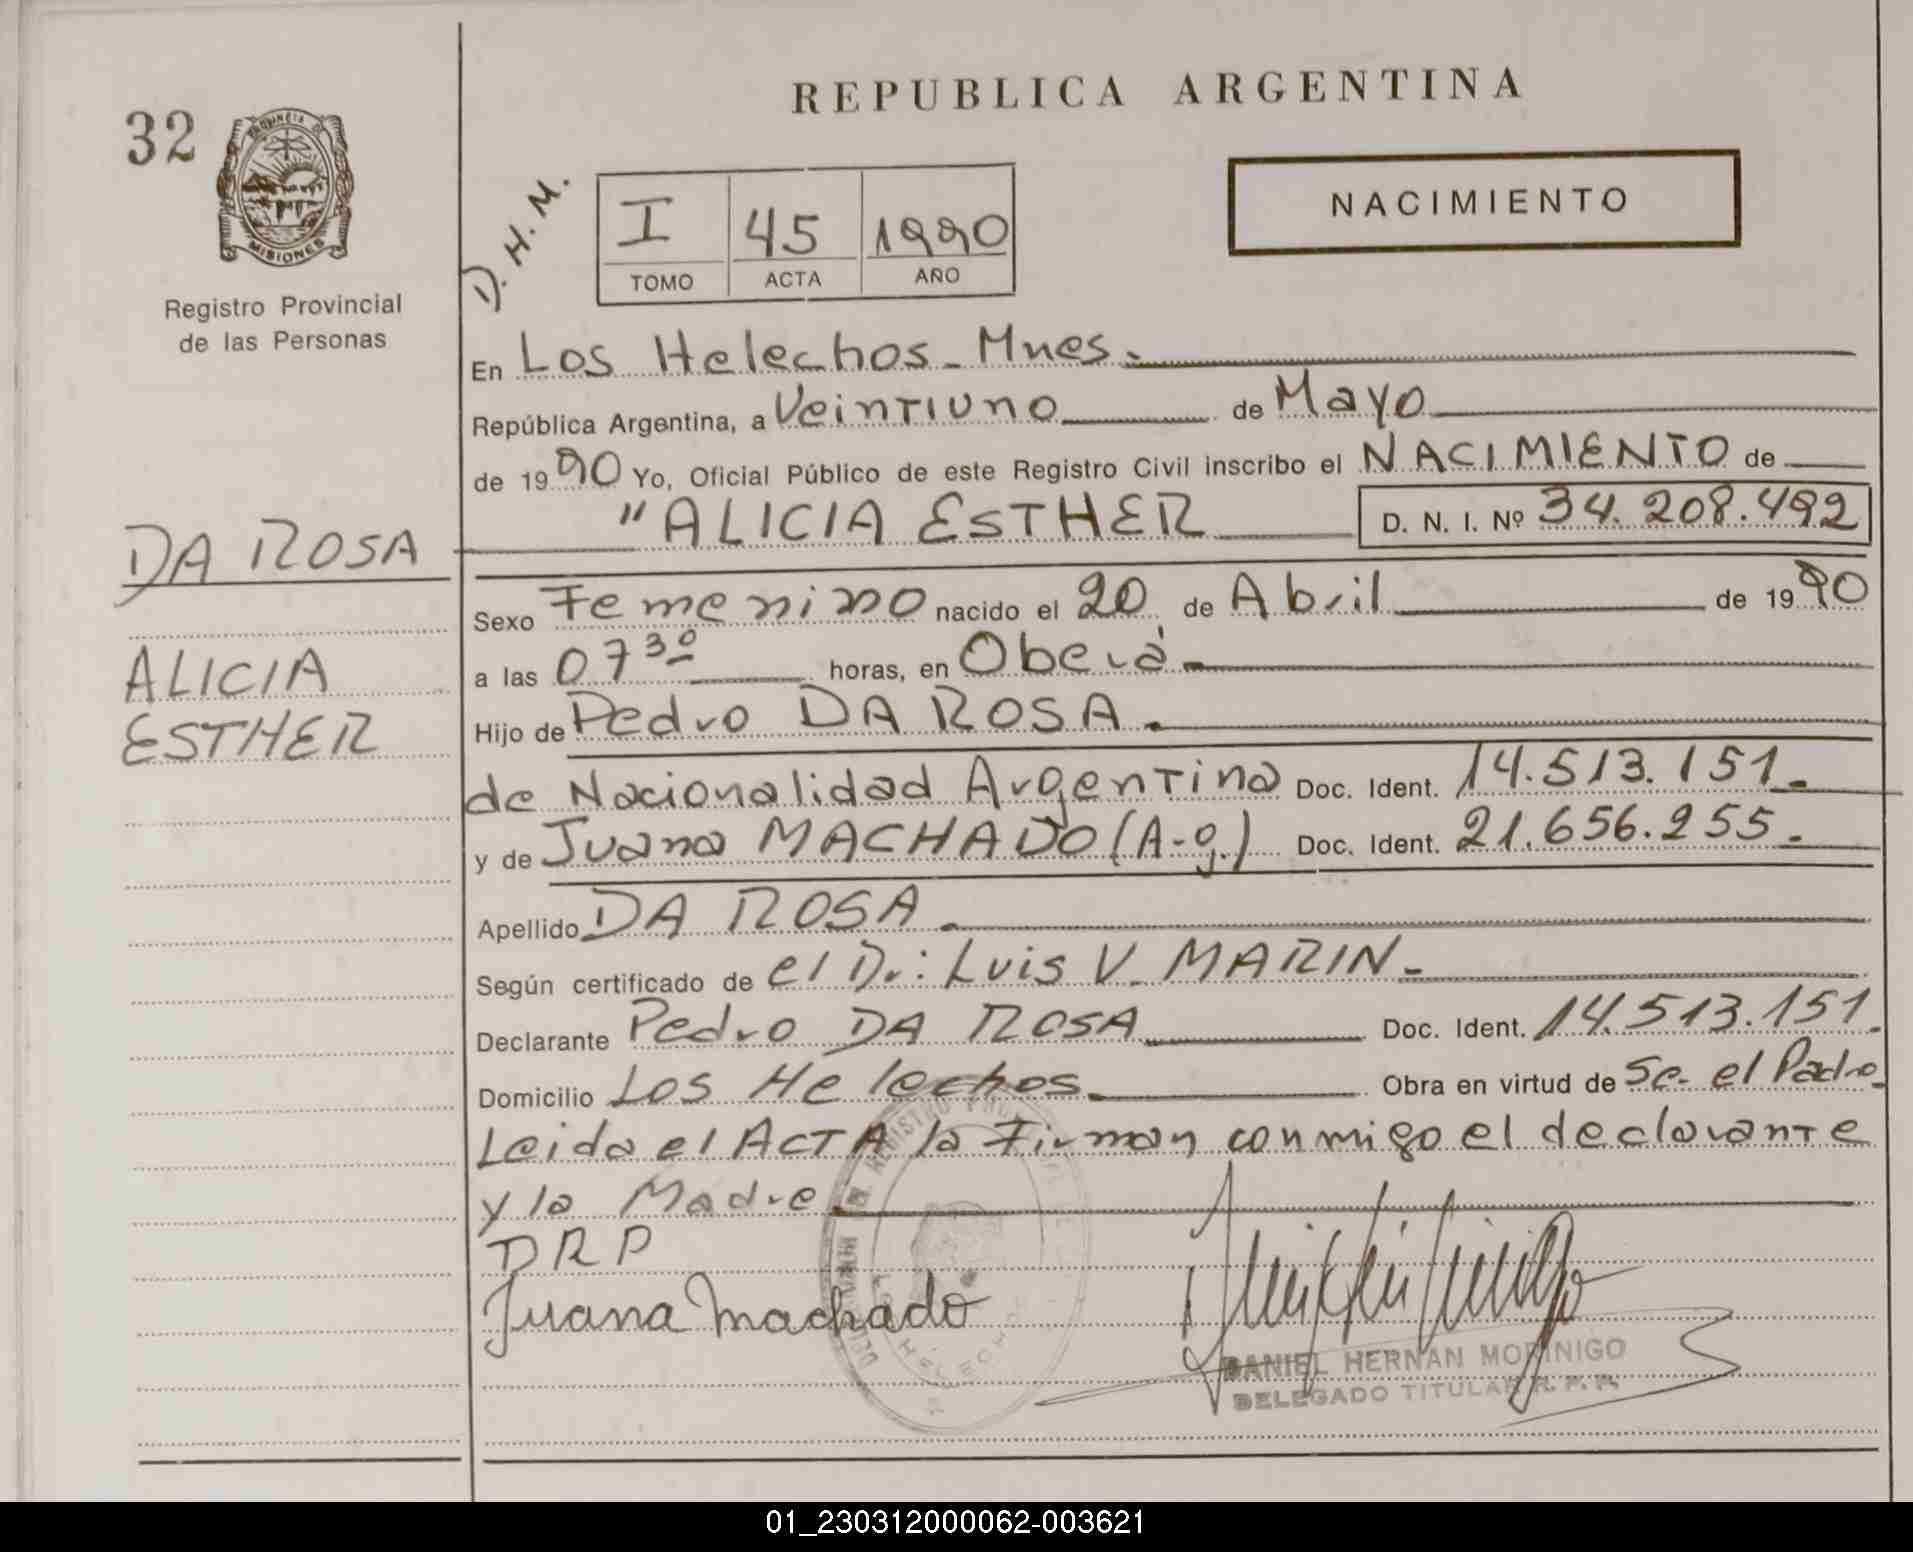 REPUBLICA ARGENTINA
32
PROVINCIA DE
MISIONES
Registro Provincial
de las Personas
D. H. M.
I 45 1990
TOMO ACTA AÑO
NACIMIENTO
En Los Helechos - Mnes.
República Argentina, a Veintiuno de Mayo
de 1990 Yo, Oficial Público de este Registro Civil inscribo el NACIMIENTO de
"ALICIA ESTHER D. N. I. Nº 34.208.492
DA ROSA
ALICIA
ESTHER
Sexo Femenino nacido el 20 de Abril de 1990
a las 07 30 horas, en Oberá
Hijo de Pedro DA ROSA.
de Nacionalidad Argentina Doc. Ident. 14.513.151.
y de Juana MACHADO (A-g.) Doc. Ident. 21.656.255.
Apellido DA ROSA.
Según certificado de el Dr: Luis V. MARIN.
Declarante Pedro DA ROSA Doc. Ident. 14.513.151.
Domicilio Los Helechos Obra en virtud de Se. el Padre
Leida el ACTA la Firman conmigo el declarante
y la Madre
DRP
Juana Machado
HELECHOS
DANIEL HERNAN MORINIGO
DELEGADO TITULAR R. P. P.
01_230312000062-003621